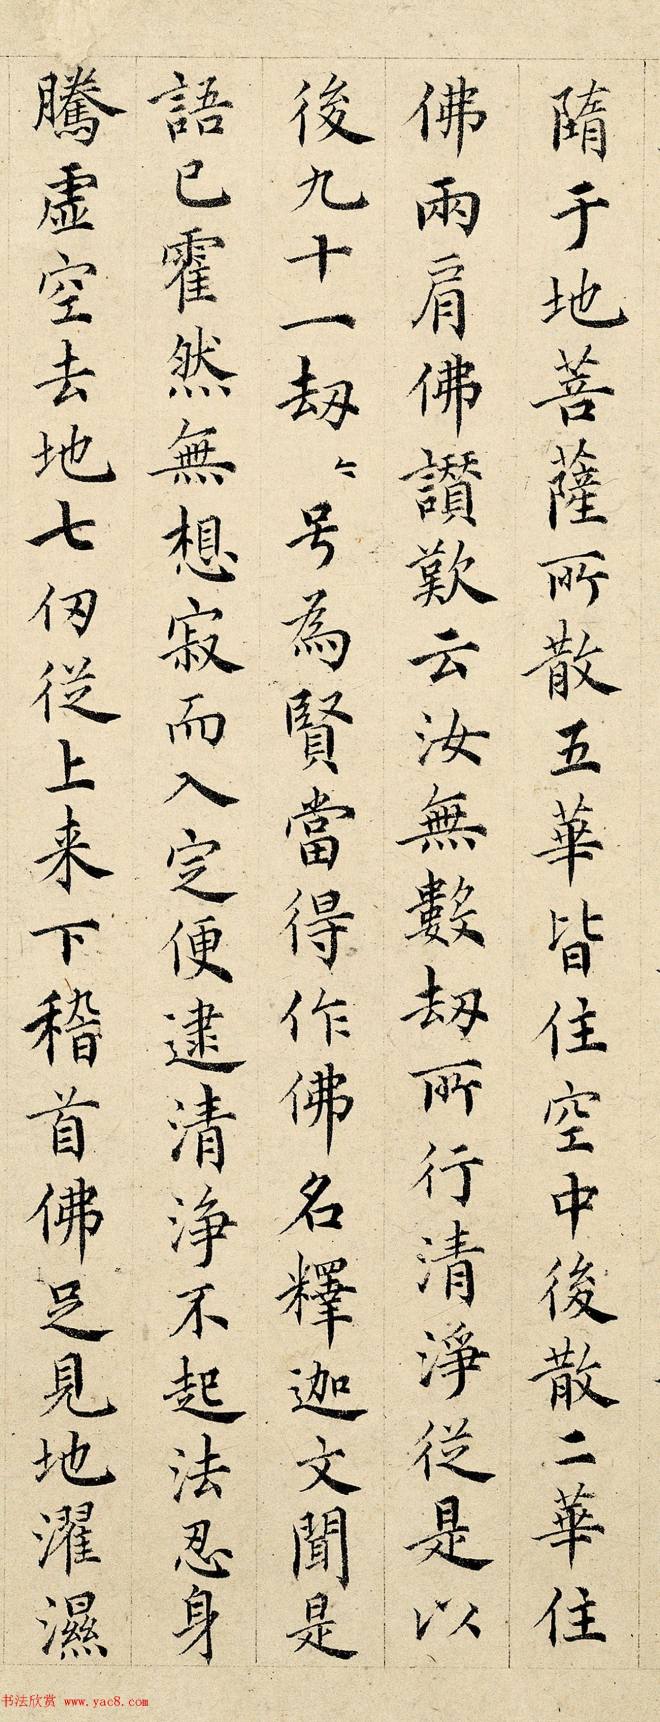 隋于地菩薩所散五華皆住空中後散二華住
佛兩肩佛讃歎云汝無數劫所行清淨從是以
後九十一劫〻号為賢當得作佛名釋迦文聞是
語已霍然無想寂而入定便逮清淨不起法忍身
騰虛空去地七仞從上来下稽首佛足見地濯濕
书法欣赏 www.yac8.com